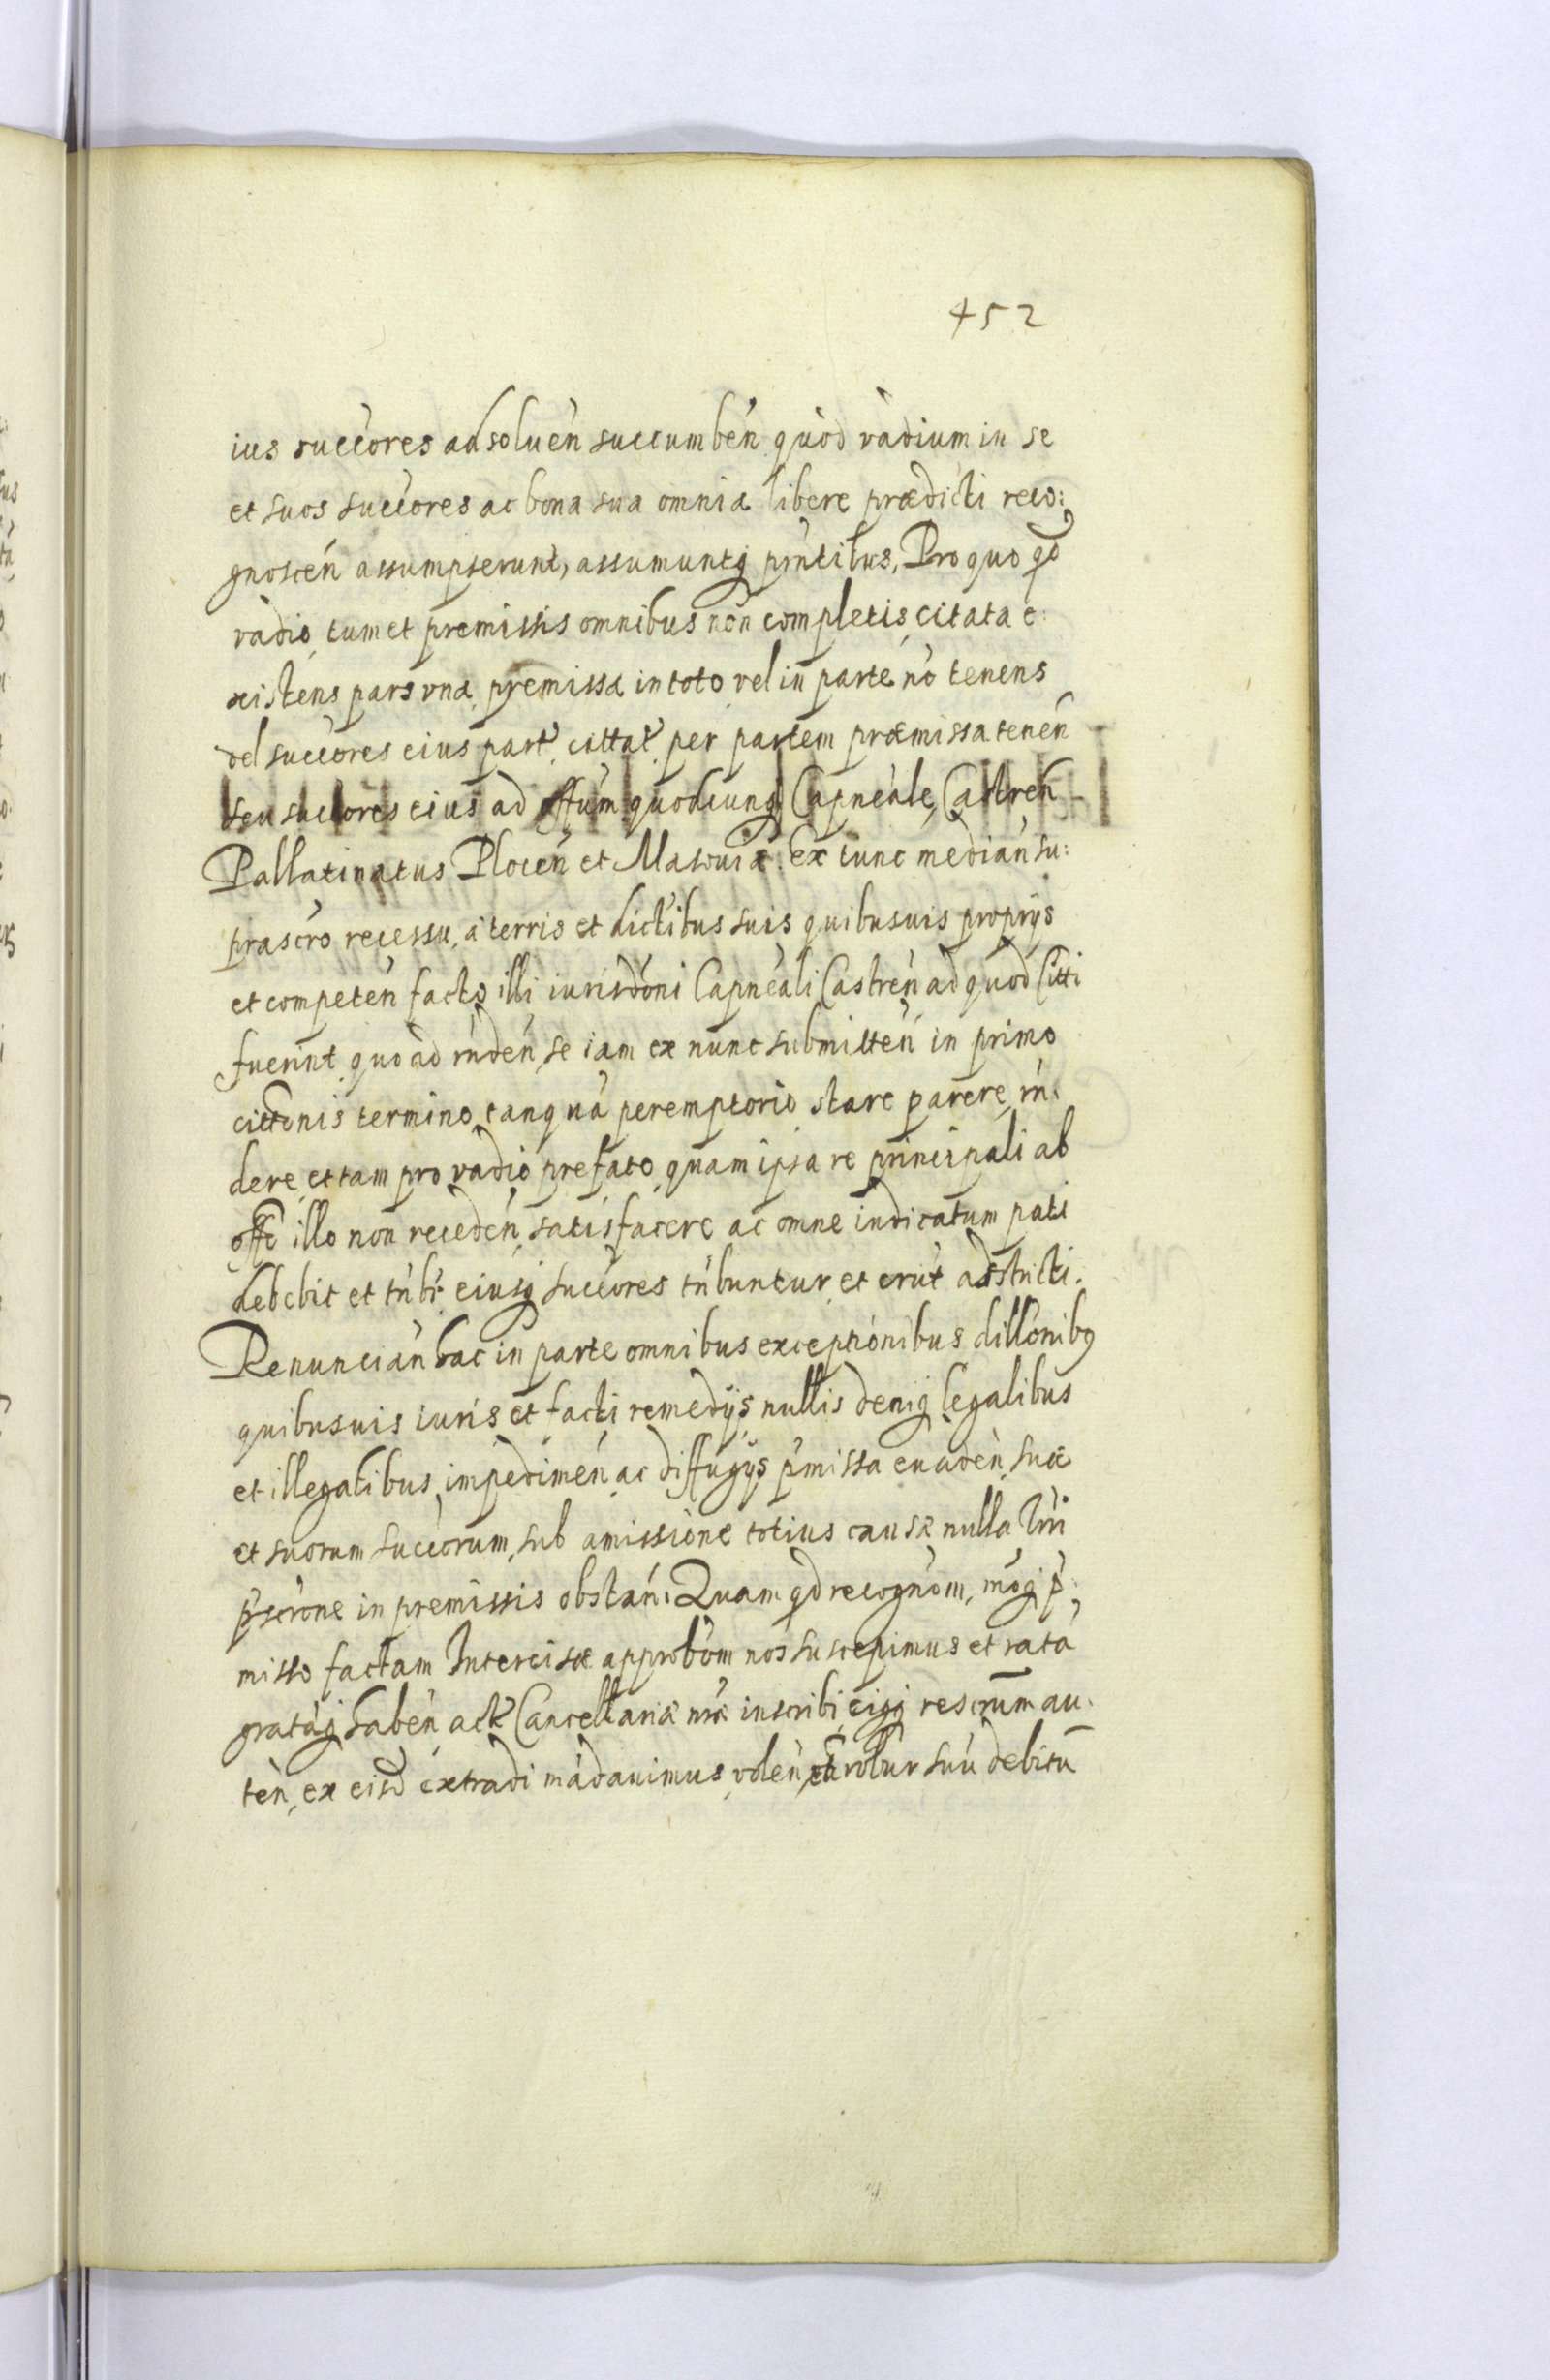 452
ius succores ad soluen succumben quod vadium in se
et suos succores ac bona sua omnia libere prædicti reco:
gnoscen assumpserunt, assumuntq prntibus, Pro quo qd
vadio, tum et premissis omnibus non completis citata e:
xistens pars una premissa in toto vel in parte no tenens
vel succores eius part cittat per partem præmissa tenen
seu succores eius ad offum quodcunq Capneale, Castren
Pallatinatus Plocen et Masouiæ. Ex tunc median su:
prascro recessu, a terris et dictibus suis quibusuis proprijs
et competen facto illi iurisdoni Capneali Castren ad quod Citti
fuerint quo ad rnden se iam ex nunc submitten in primo
cittonis termino tanqua peremptorio stare parere rn:
dere et tam pro vadio prefato quam ipsa re principali ab
offo illo non receden satisfacere ac omne iudicatum pati
debebit et tnbr eiusq succores tnbuntur et erut adstricti.
Renuncian hac in parte omnibus exceptionibus dillonibq
quibusuis iuris et facti remedijs nullis deniq legalibus
et illegalibus impedimen ac diffugijs pmissa euaden, suæ
et suorum succorum, sub amissione totius causæ nulla Trri
pscrone in premissis obstan. Quam qd recognom, moq p:
misso factam Intercisæ approbom nos suscepimus et rata
grataq haben act Cancellariæ nræ inscribi eisq rescrum au:
ten, ex eisd extradi madauimus, volen robur suu debitu